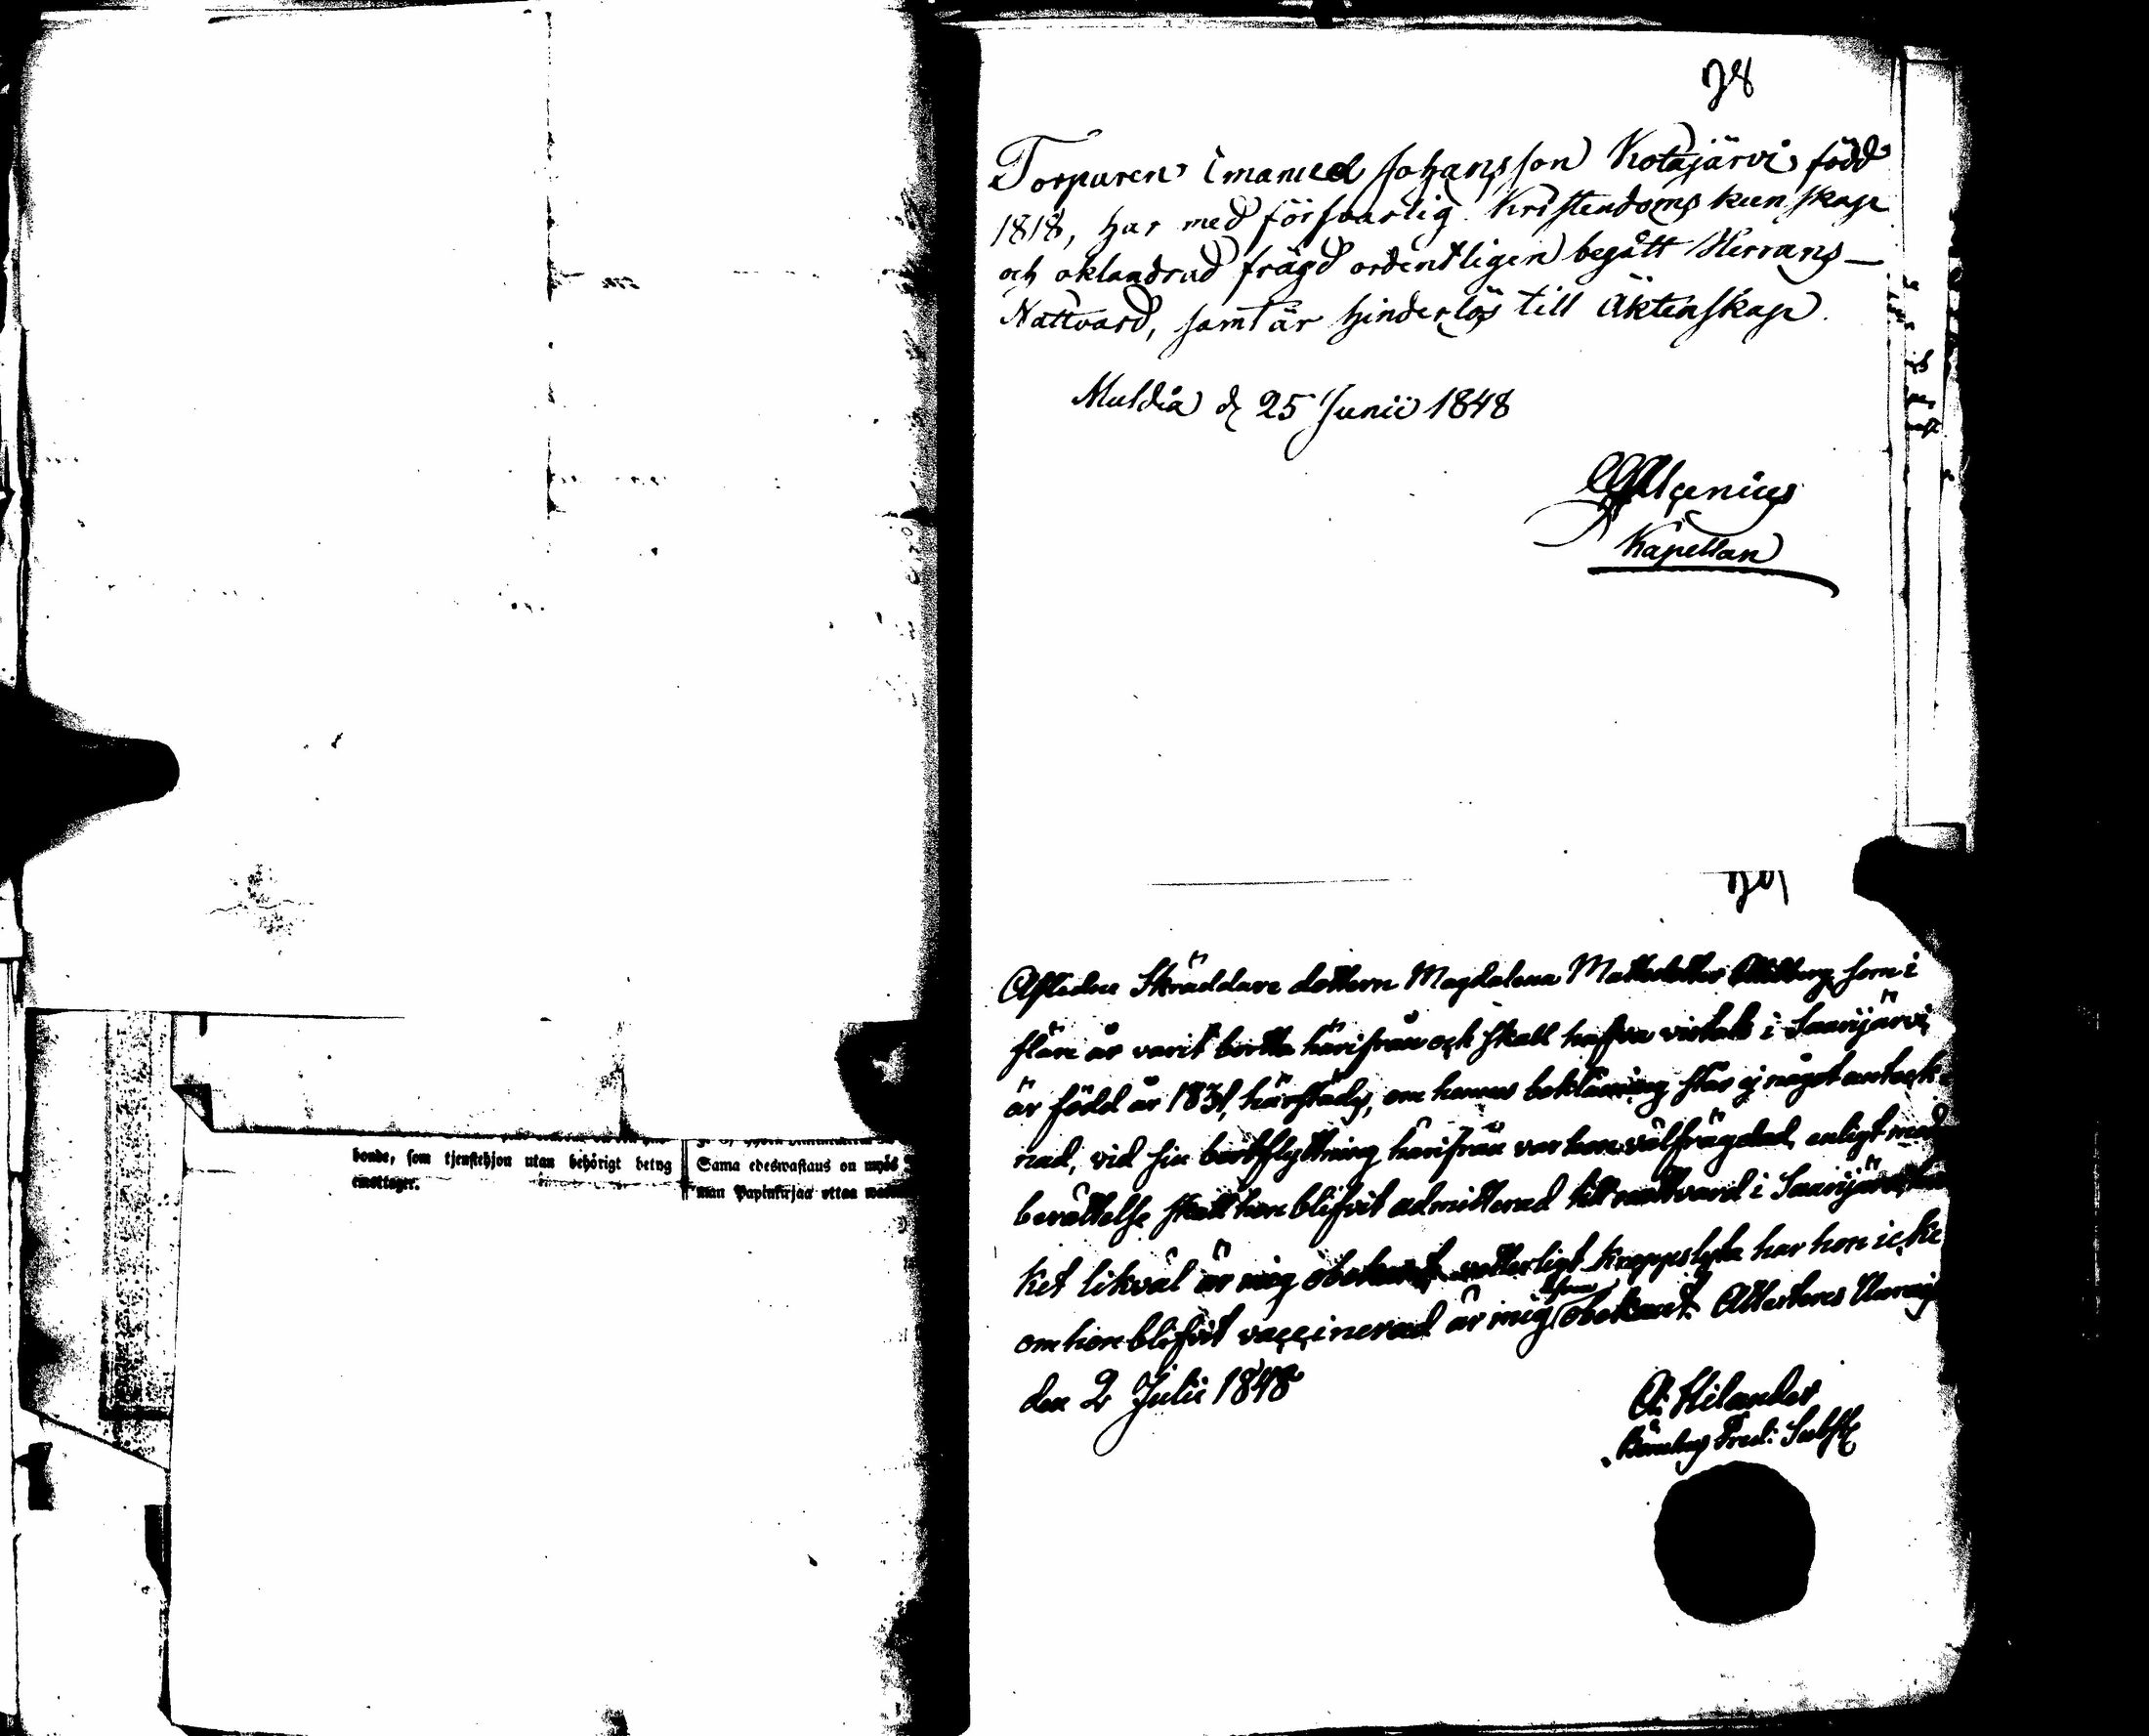 bonde, som tjenstehjon utan behörigt betyg
emottager.
Sama edeswastaus on myös
man Papinkirjaa ottaa
78
Torparen Emanuel Johansson Kotajärvi född
1818, har med försvarlig Kristendoms kunskap
och oklandrad frägd ordentligen begått Herrans
Nattvard, samt är hinderlös till Äktenskap.
Muldia d. 25 Junii 1848
Alcenius
Kapellan
79
Aflidne Skräddare dottern Magdalena Mattsdotter som i
flere år varit borta härifrån och skall hafva vistats i Saarijärvi,
är född år 1831, härstädes, om hennes beklädning står ej något anteck-
nad, vid sin bortflyttning härifrån var hon välfrägdad, enligt
berättelse skall hon blifvit admitterad till nattvard i Saarijärvi,
ket likväl är mig obekant, vetterligt kroppslyte har hon icke
om hon blifvit vaccinerad är mig äfven obekant. Attesteras
den 2 Julii 1848
A: Hilander